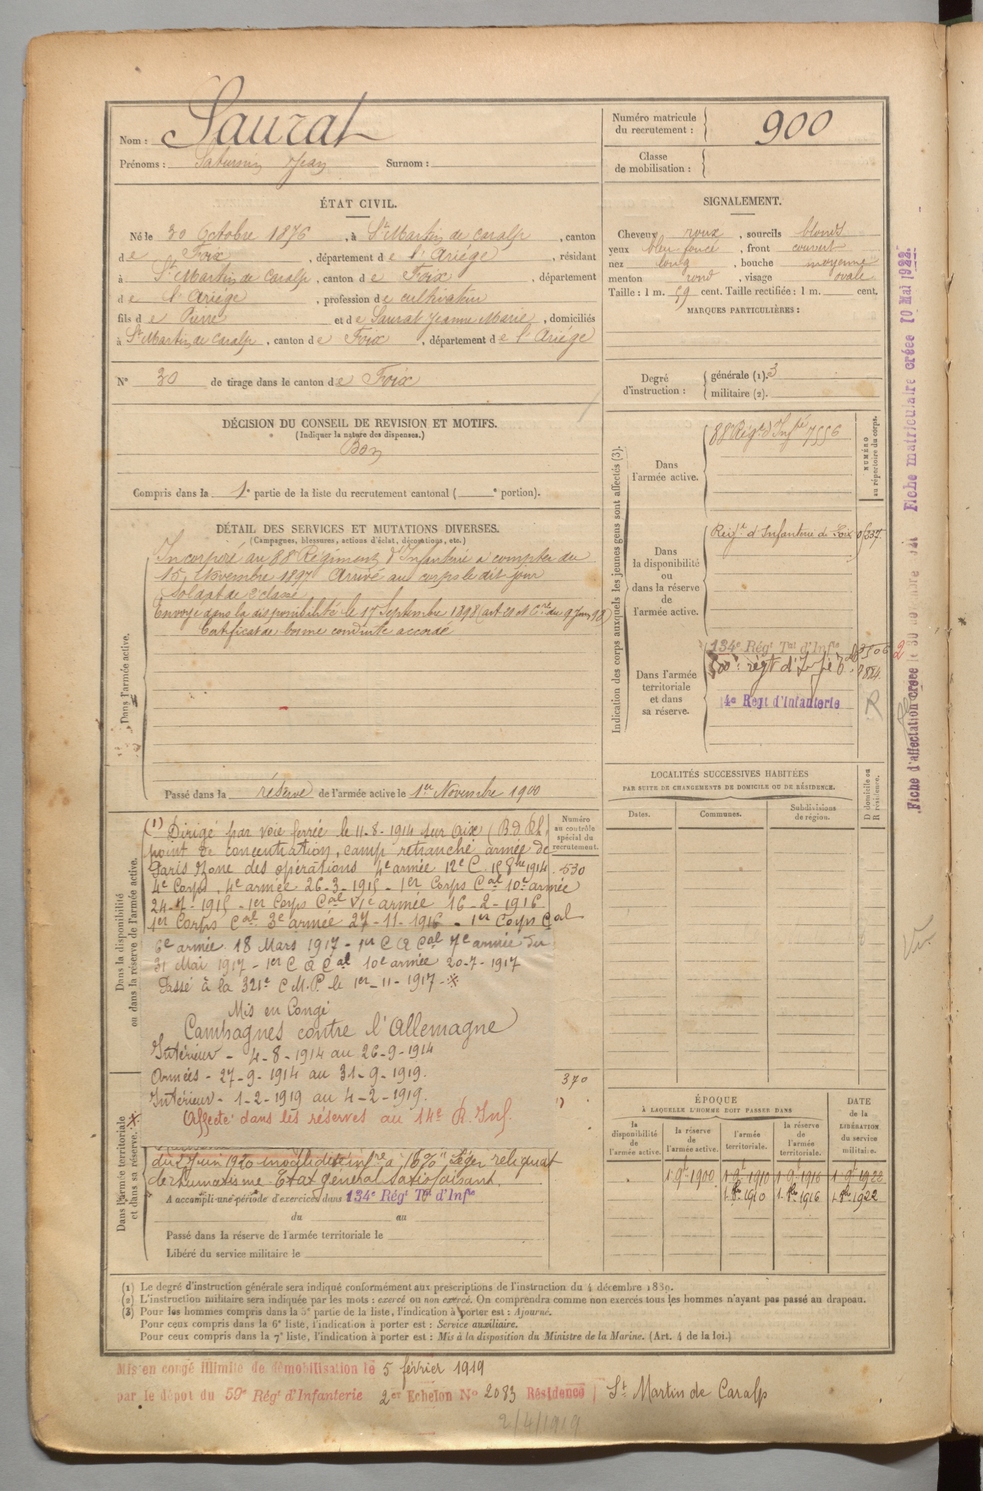 Nom : Saurat
Prénoms : Saturnin Jean Surnom :
Numéro matricule du recrutement : 900
Classe de mobilisation :
ÉTAT CIVIL.
Né le 30 Octobre 1876, à St Martin de Caralp, canton
de Foix, département de l'Ariège, résidant
à St Martin de Caralp, canton de Foix, département
de l'Ariège, profession de cultivateur
fils de Pierre et de Saurat Jeanne Marie, domiciliés
à St Martin de Caralp, canton de Foix, département de l'Ariège
N° 30 de tirage dans le canton de Foix
SIGNALEMENT.
Cheveux roux, sourcils blonds
yeux bleu foncé, front couvert
nez long, bouche moyenne
menton rond, visage ovale
Taille : 1 m. 59 cent. Taille rectifiée : 1 m. cent.
MARQUES PARTICULIÈRES :
Degré d'instruction : générale (1). 3
militaire (2).
DÉCISION DU CONSEIL DE REVISION ET MOTIFS.
(Indiquer la nature des dispenses.)
Bon
Compris dans la 1e partie de la liste du recrutement cantonal ( e portion).
DÉTAIL DES SERVICES ET MUTATIONS DIVERSES.
(Campagnes, blessures, actions d'éclat, décorations, etc.)
Dans l'armée active.
Incorporé au 88e Régiment d'Infanterie à compter du
15 Novembre 1897 Arrivé au corps le dit jour
Soldat de 2e classe
Envoyé dans la disponibilité le 17 Septembre 1898
Certificat de bonne conduite accordé
Passé dans la réserve de l'armée active le 1er Novembre 1900
Indication des corps auxquels les jeunes gens sont affectés (3).
Dans l'armée active.
88e Régt d'Infrie 7556
NUMÉRO au répertoire du corps.
Dans la disponibilité ou dans la réserve de l'armée active.
Regt d'Infanterie de Foix
Dans l'armée territoriale et dans sa réserve.
134e Régt Tal d'Infie
4e Regt d'Infanterie
R
LOCALITÉS SUCCESSIVES HABITÉES
PAR SUITE DE CHANGEMENTS DE DOMICILE OU DE RÉSIDENCE.
Dates. Communes. Subdivisions de région.
D domicile ou R résidence.
Numéro au contrôle spécial du recrutement.
530
370
Dans la disponibilité ou dans la réserve de l'armée active.
(1) Dirigé par voie ferrée le 11-8-1914 sur
point de concentration, camp retranché armée de
Paris Zone des opérations 4e armée 12e C. 1914
4e Corps, 4e armée 26-3-1915 - 1er Corps Cal 10e armée
1915 - 1er Corps Cal VIe armée 16-2-1916
1er Corps Cal 3e armée 27-11-1916 - 1er Corps Cal
6e armée 18 Mars 1917 - 1er C A Cal 7e armée du
31 Mai 1917 - 1er C A Cal 10e armée 20-7-1917
Passé à la 321e C.M.P. le 1er-11-1917
Mis en Congé
Campagnes contre l'Allemagne
Intérieur - 4-8-1914 au 26-9-1914
Armées - 27-9-1914 au 31-9-1919.
Intérieur - 1-2-1919 au 4-2-1919.
Affecté dans les réserves au 14e R. Inf.
Dans l'armée territoriale et dans sa réserve.
du 2 Juin 1920 infre à 15% Léger reliquat
de rhumatisme Etat général satisfaisant.
A accompli une période d'exercices dans 134e Régt Tal d'Infie
du au
Passé dans la réserve de l'armée territoriale le
Libéré du service militaire le
ÉPOQUE
À LAQUELLE L'HOMME DOIT PASSER DANS
la disponibilité de l'armée active.
la réserve de l'armée active.
l'armée territoriale.
la réserve de l'armée territoriale.
DATE de la LIBÉRATION du service militaire.
1 9e 1900 1 9e 1910 1 9e 1916 1 9e 1922
1. 8re 1910 1. 8re 1916 1. 8re 1922
(1) Le degré d'instruction générale sera indiqué conformément aux prescriptions de l'instruction du 4 décembre 1889.
(2) L'instruction militaire sera indiquée par les mots : exercé ou non exercé. On comprendra comme non exercés tous les hommes n'ayant pas passé au drapeau.
(3) Pour les hommes compris dans la 5e partie de la liste, l'indication à porter est : Ajourné.
Pour ceux compris dans la 6e liste, l'indication à porter est : Service auxiliaire.
Pour ceux compris dans la 7e liste, l'indication à porter est : Mis à la disposition du Ministre de la Marine. (Art. 4 de la loi.)
Mis en congé illimité de démobilisation le 5 février 1919
par le dépot du 59e Régt d'Infanterie 2er Echelon No 2083 Résidence St Martin de Caralp
2/4/1919
Fiche matriculaire créée 10 Mai 1922.
Fiche d'affectation créée le 30 novembre